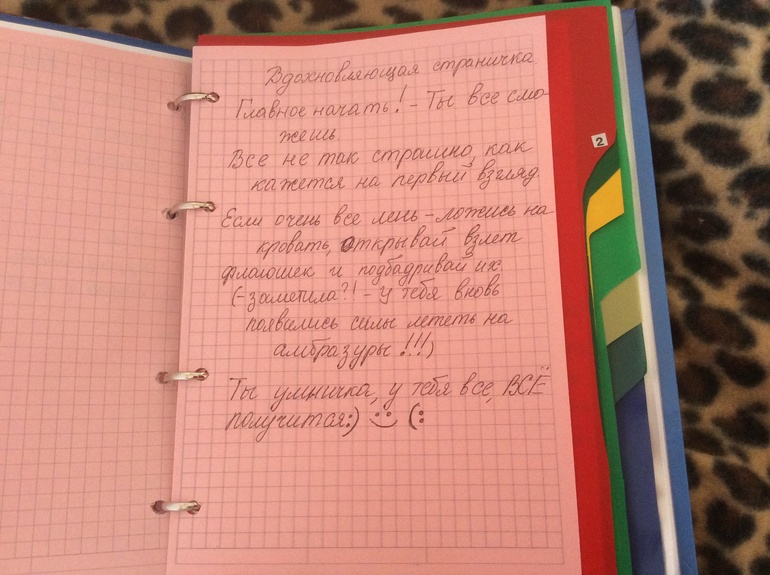 Вдохновляющая страничка.
Главное начать! - Ты все смо-
жешь.
Все не так страшно, как
кажется на первый взгляд.
Если очень все лень - ложись на
кровать, открывай взлет
флаюшек и подбадривай их.
(-заметила?! - У тебя вновь
появились силы лететь на
амбразуры!!!)
Ты умничка, у тебя все, ВСЁ
получится:) (:
2